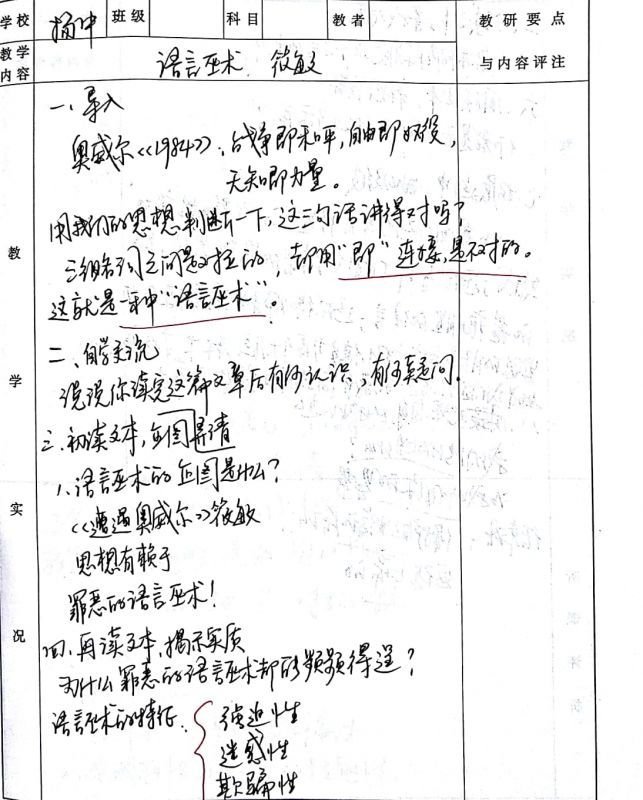 学校 扬中 班级 科目 教者 教研要点
与内容评注
教学内容 语言巫术 筱敏
教学实况
一、导入
奥威尔《1984》：战争即和平，自由即奴役，
无知即力量。
用我们的思想判断一下，这三句话讲得对吗？
三组名词之间是对抗的，却用“即”连接，是不对的。
这就是一种“语言巫术”。
二、自学交流
说说你读完这篇文章后有何认识，有何疑问.
三、初读文本，企图弄清
1、语言巫术的企图是什么？
《遭遇奥威尔》筱敏
思想有赖于
罪恶的语言巫术！
四、再读文本，揭示实质
为什么罪恶的语言巫术却能频频得逞？
语言巫术的特征：
强迫性
迷惑性
欺骗性